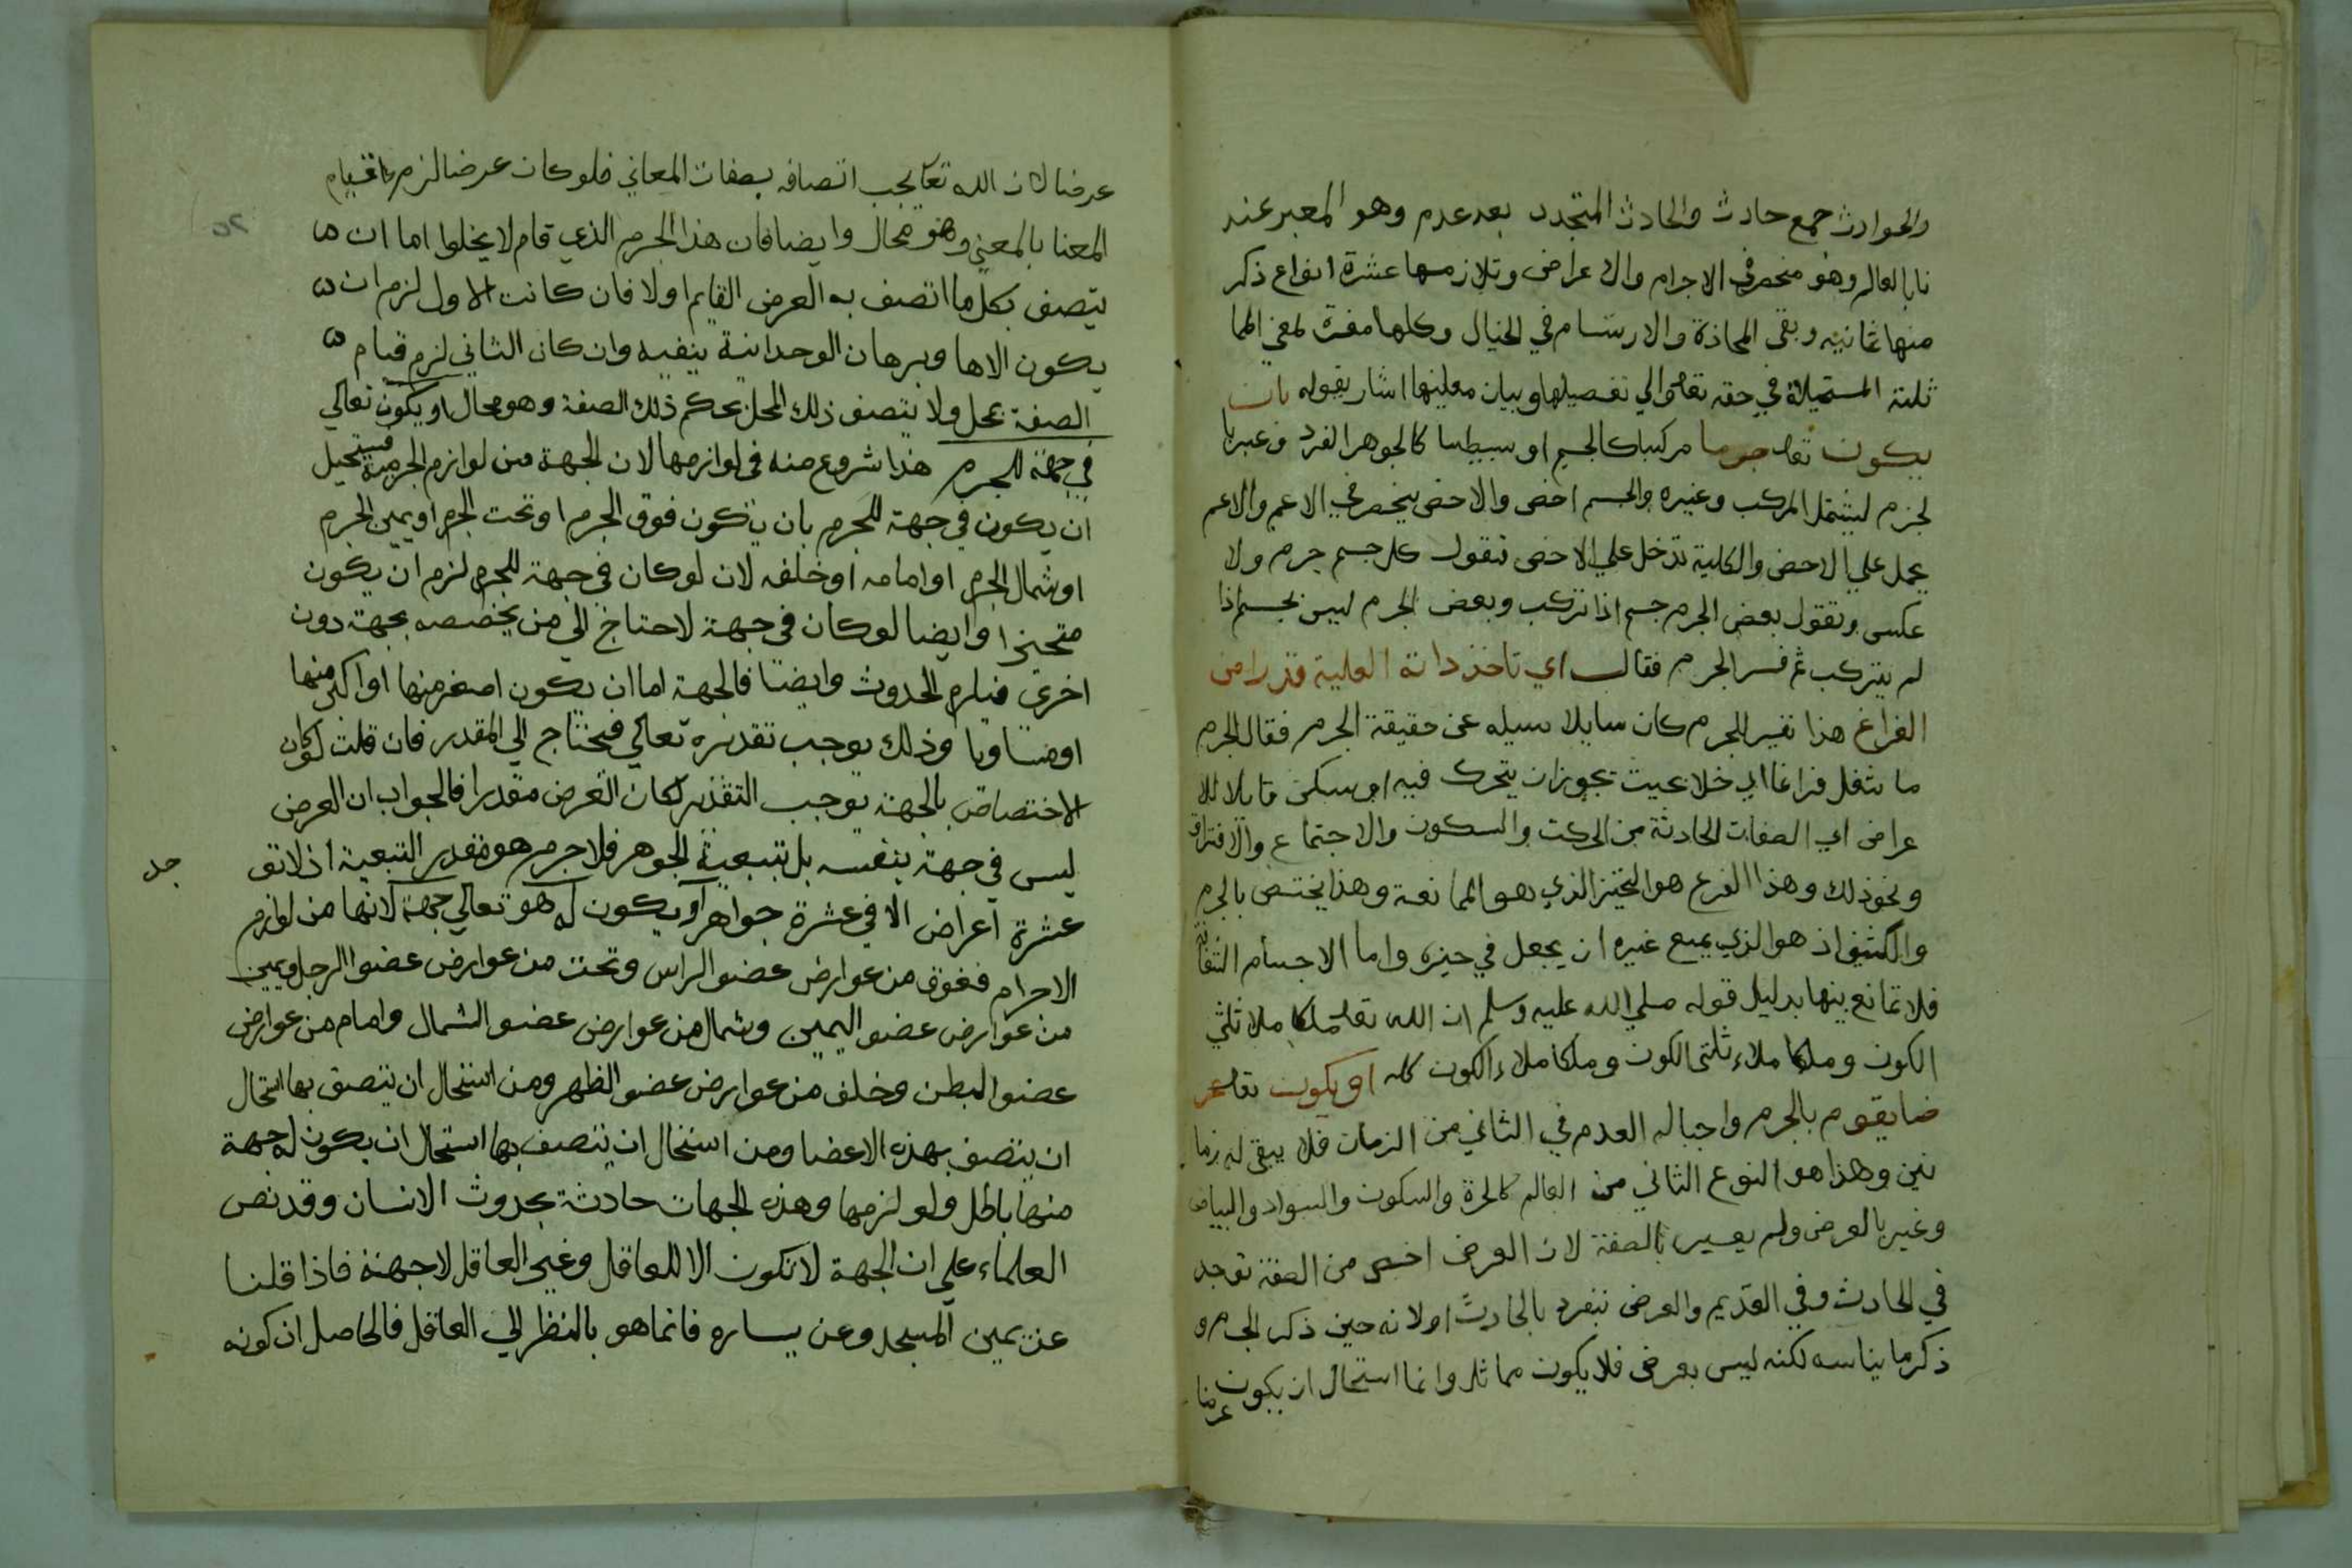 والحوادث جمع حادث والحادث المتجدد بعد عدم وهو المعبر عند
نا بالعالم وهو منحصر في الاجرام والاعراض وتلازمها عشرة انواع ذكر
منها ثمانية وبقي المحاذة والارتسام في الخيال وكلها مفسرة لمعني المما
ثلة المستحيلة في حقه تعالى والي تفصيلها وبيان معلينها اشار بقوله بان
يكون تعالى جرما مركبا كالجسم او بسيطا كالجوهر الفرد وعبر با
لجرم ليشمل المركب وغيره والجسم اخص والاخص ينحصر في الاعم والاعم
يحمل علي الاخص والكلية تدخل علي الاخص تقول كل جسم جرم ولا
عكس وتقول بعض الجرم جسم اذا تركب وبعض الجرم ليس بجسم اذا
لم يتركب ثم فسر الجرم فقال اي تاخذ ذاته العلية قدرا من
الفراغ هذا تفسير للجرم كان سايلا سيله عن حقيقة الجرم فقال الجرم
ما شغل فراغا اي خلا بحيث يجوز ان يتحرك فيه او يسكن قابلا للا
عراض اي الصفات الحادثة من الحركت والسكون والاجتماع والافتراق
ونحو ذلك وهذا الفرع هو التحيز الذي هو المما نعة وهذا يختص بالجرم
والكثيف اذ هو الذي يمنع غيره ان يجعل في حيزه واما الاجسام الشفافية
فلا تمانع بينها بدليل قوله صلي الله عليه وسلم ان الله تعالى ملكا ملا ثلثي
الكون وملكا ملاء ثلثي الكون وملكا ملاء الكون كله او يكون تعالى عر
ضا يقوم بالجرم واجبا له العدم في الثاني من الزمان فلا يبقى له زما
نين وهذا هو النوع الثاني من العالم كالحرة والسكون والسواد والبياض
وغير بالعرض ولم يعبر بالصفة لان العرض اخص من الصفة توجد
في الحادث وفي القديم والعرض ننفرد بالحادث او لانه حين ذكر الجرم و
ذكر ما يناسبه لكنه ليس بعرض فلا يكون مماثلا وانما استحال ان يكون عرضا
عرضا لان الله تعا يجب اتصافه بصفات المعاني فلو كان عرضا لزم قيام
المعنا بالمعني وهو محال وايضا فان هذا الجرم الذي قام لا يخلوا اما ان
يتصف بكل ما اتصف به العرض القايم اولا فان كانت الاول لزم ان
يكون الاها وبرهان الوحدانية ينفيه وان كان الثاني لزم قيام
الصفة بمحل ولا يتصف ذلك المحل بحكم ذلك الصفة وهو محال او يكون تعالي
في جهة للجرم هذا شروع منه في لوازمها لان الجهة من لوازم الجرمية فيستحيل
ان يكون في جهة للجرم بان يكون فوق الجرم او تحت الجرم او يمين الجرم
او شمال الجرم او امامه او خلفه لان لو كان في جهة للجرم لزم ان يكون
متحيزا وايضا لو كان في جهة لاحتاج الي من يخصصه بجهة دون
اخرى فيلزم الحدوث وايضا فالجهة اما ان يكون اصغر منها او اكبر منها
او مساويا وذلك يوجب تقديره تعالي فيحتاج الي المقدر فان قلت لو كان
الاختصاص بالجهة يوجب التقدير لكان العرض مقدرا فالجواب ان العرض
ليس في جهة بنفسه بل بتبعية الجوهر فلا جرم هو مقدر التبعية اذ لا تو
جد
عشرة اعراض الا في عشرة جواهر او يكون له هو تعالي جهة لانها من لوازم
الاجرام ففوق من عوارض عضو الراس وتحت من عوارض عضوا الرجل ويمين
من عوارض عضو اليمين وشمال من عوارض عضو الشمال وامام من عوارض
عضو البطن وخلف من عوارض عضو الظهر ومن استحال ان يتصف بها استحال
ان يتصف بهذه الاعضا ومن استحال ان يتصف بها استحال ان يكون له جهة
منها باطل ولو لزمها وهذه الجهات حادثة بحدوث الانسان وقد نص
العلماء علي ان الجهة لا تكون الا للعاقل وغير العاقل لا جهة فاذا قلنا
عن يمين المسجد وعن يساره فانما هو بالنظر الي العاقل فالحاصل ان كونه